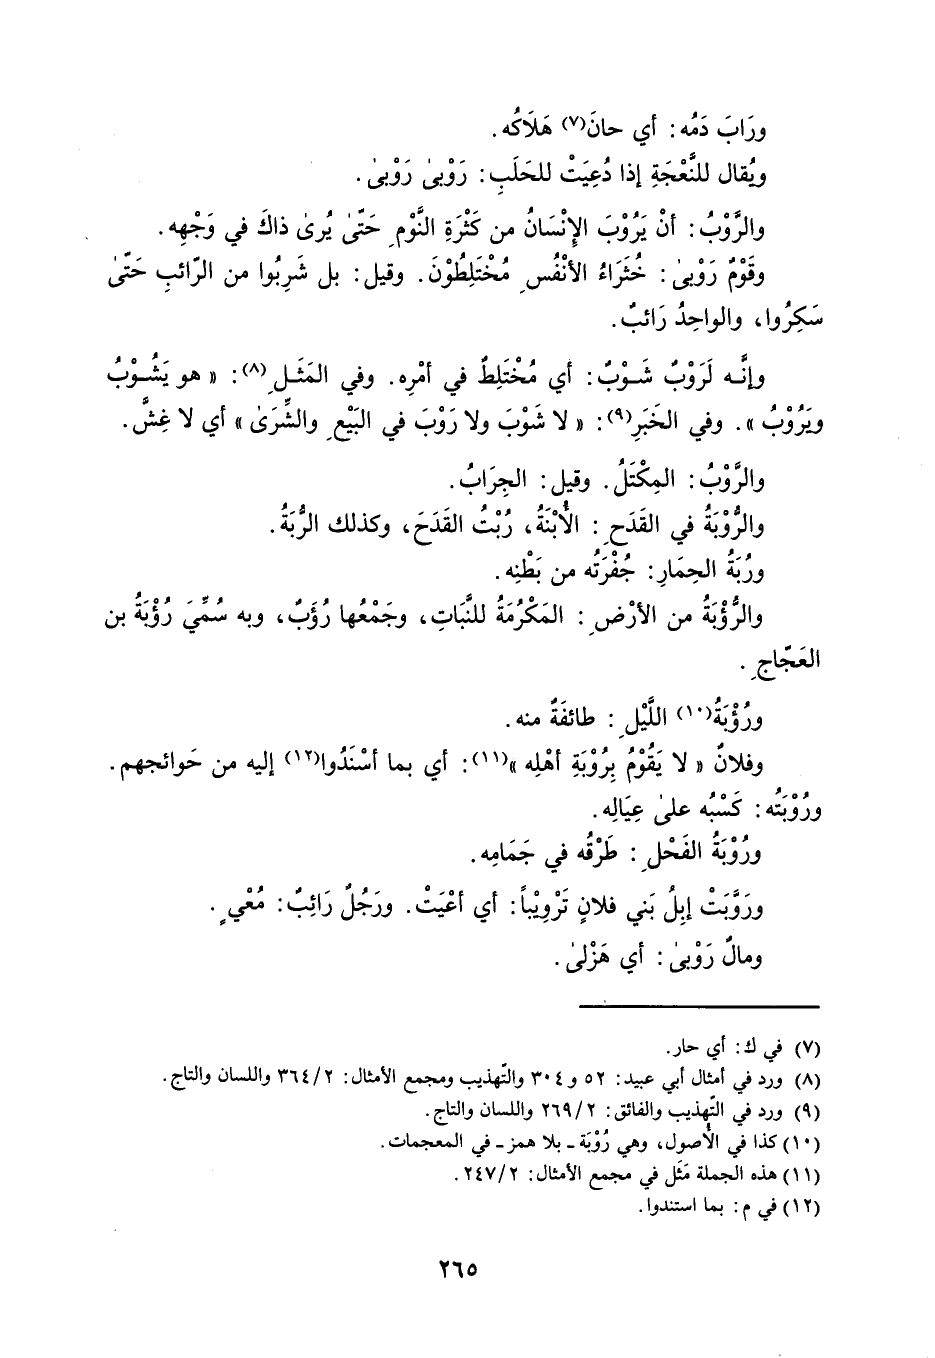 ورَابَ دَمُه : أي حانَ(٧) هَلَاكُه .
ويُقال للنَّعْجَةِ إذا دُعِيَتْ للحَلَبِ : رَوْبىٰ رَوْبىٰ .
والرَّوْبُ : أنْ يَرُوْبَ الإِنْسَانُ من كَثْرَةِ النَّوْمِ حَتّىٰ يُرىٰ ذاكَ في وَجْهِه .
وقَوْمٌ رَوْبىٰ : خُثَرَاءُ الأنْفُسِ مُخْتَلِطُوْنَ . وقيل : بل شَرِبُوا من الرّائبِ حَتّىٰ
سَكِرُوا ، والواحِدُ رَائبٌ .
وإنَّه لَرَوْبٌ شَوْبٌ : أي مُخْتَلِطٌ في أمْرِه . وفي المَثَلِ(٨) : « هو يَشُوْبُ
ويَرُوْبُ » . وفي الخَبَرِ(٩) : « لا شَوْبَ ولا رَوْبَ في البَيْعِ والشِّرَىٰ » أي لا غِشَّ .
والرَّوْبُ : المِكْتَلُ . وقيل : الجِرَابُ .
والرُّوْبَةُ في القَدَحِ : الأُبْنَةُ ، رُبْتُ القَدَحَ ، وكذلك الرُّبَةُ .
ورُبَةُ الحِمَارِ : جُفْرَتُه من بَطْنِه .
والرُّؤْبَةُ من الأرْضِ : المَكْرُمَةُ للنَّبَاتِ ، وجَمْعُها رُؤَبٌ ، وبه سُمِّيَ رُؤْبَةُ بن
العَجّاجِ .
ورُؤْبَةُ(١٠) اللَّيْلِ : طائفَةٌ منه .
وفلانٌ « لا يَقُوْمُ بِرُوْبَةِ أهْلِه »(١١) : أي بما أسْنَدُوا(١٢) إليه من حَوائجهم .
ورُوْبَتُه : كَسْبُه علىٰ عِيَالِه .
ورُوْبَةُ الفَحْلِ : طَرْقُه في جَمَامِه .
ورَوَّبَتْ إبِلُ بَني فلانٍ تَرْوِيْباً : أي أعْيَتْ . ورَجُلٌ رَائِبٌ : مُعْيٍ .
ومالٌ رَوْبىٰ : أي هَزْلىٰ .
(٧) في ك : أي حار .
(٨) ورد في أمثال أبي عبيد : ٥٢ و ٣٠٤ والتّهذيب ومجمع الأمثال : ٣٦٤/٢ واللسان والتاج .
(٩) ورد في التّهذيب والفائق : ٢٦٩/٢ واللسان والتاج .
(١٠) كذا في الأُصول ، وهي رُوْبَة ـ بلا همز ـ في المعجمات .
(١١) هذه الجملة مَثَل في مجمع الأمثال : ٢٤٧/٢ .
(١٢) في م : بما استندوا .
٢٦٥